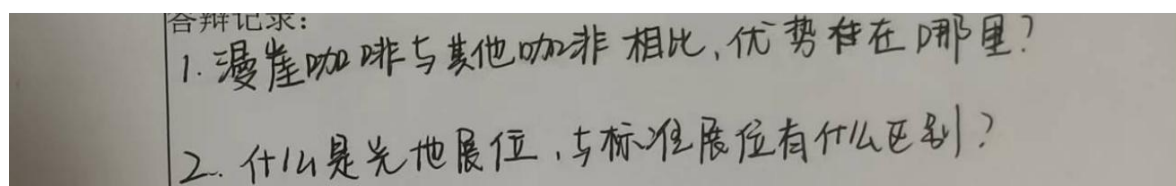 答辩记录:
1. 漫崖咖啡与其他咖非相比,优势在在哪里?
2. 什么是光地展位,与标准展位有什么区别?